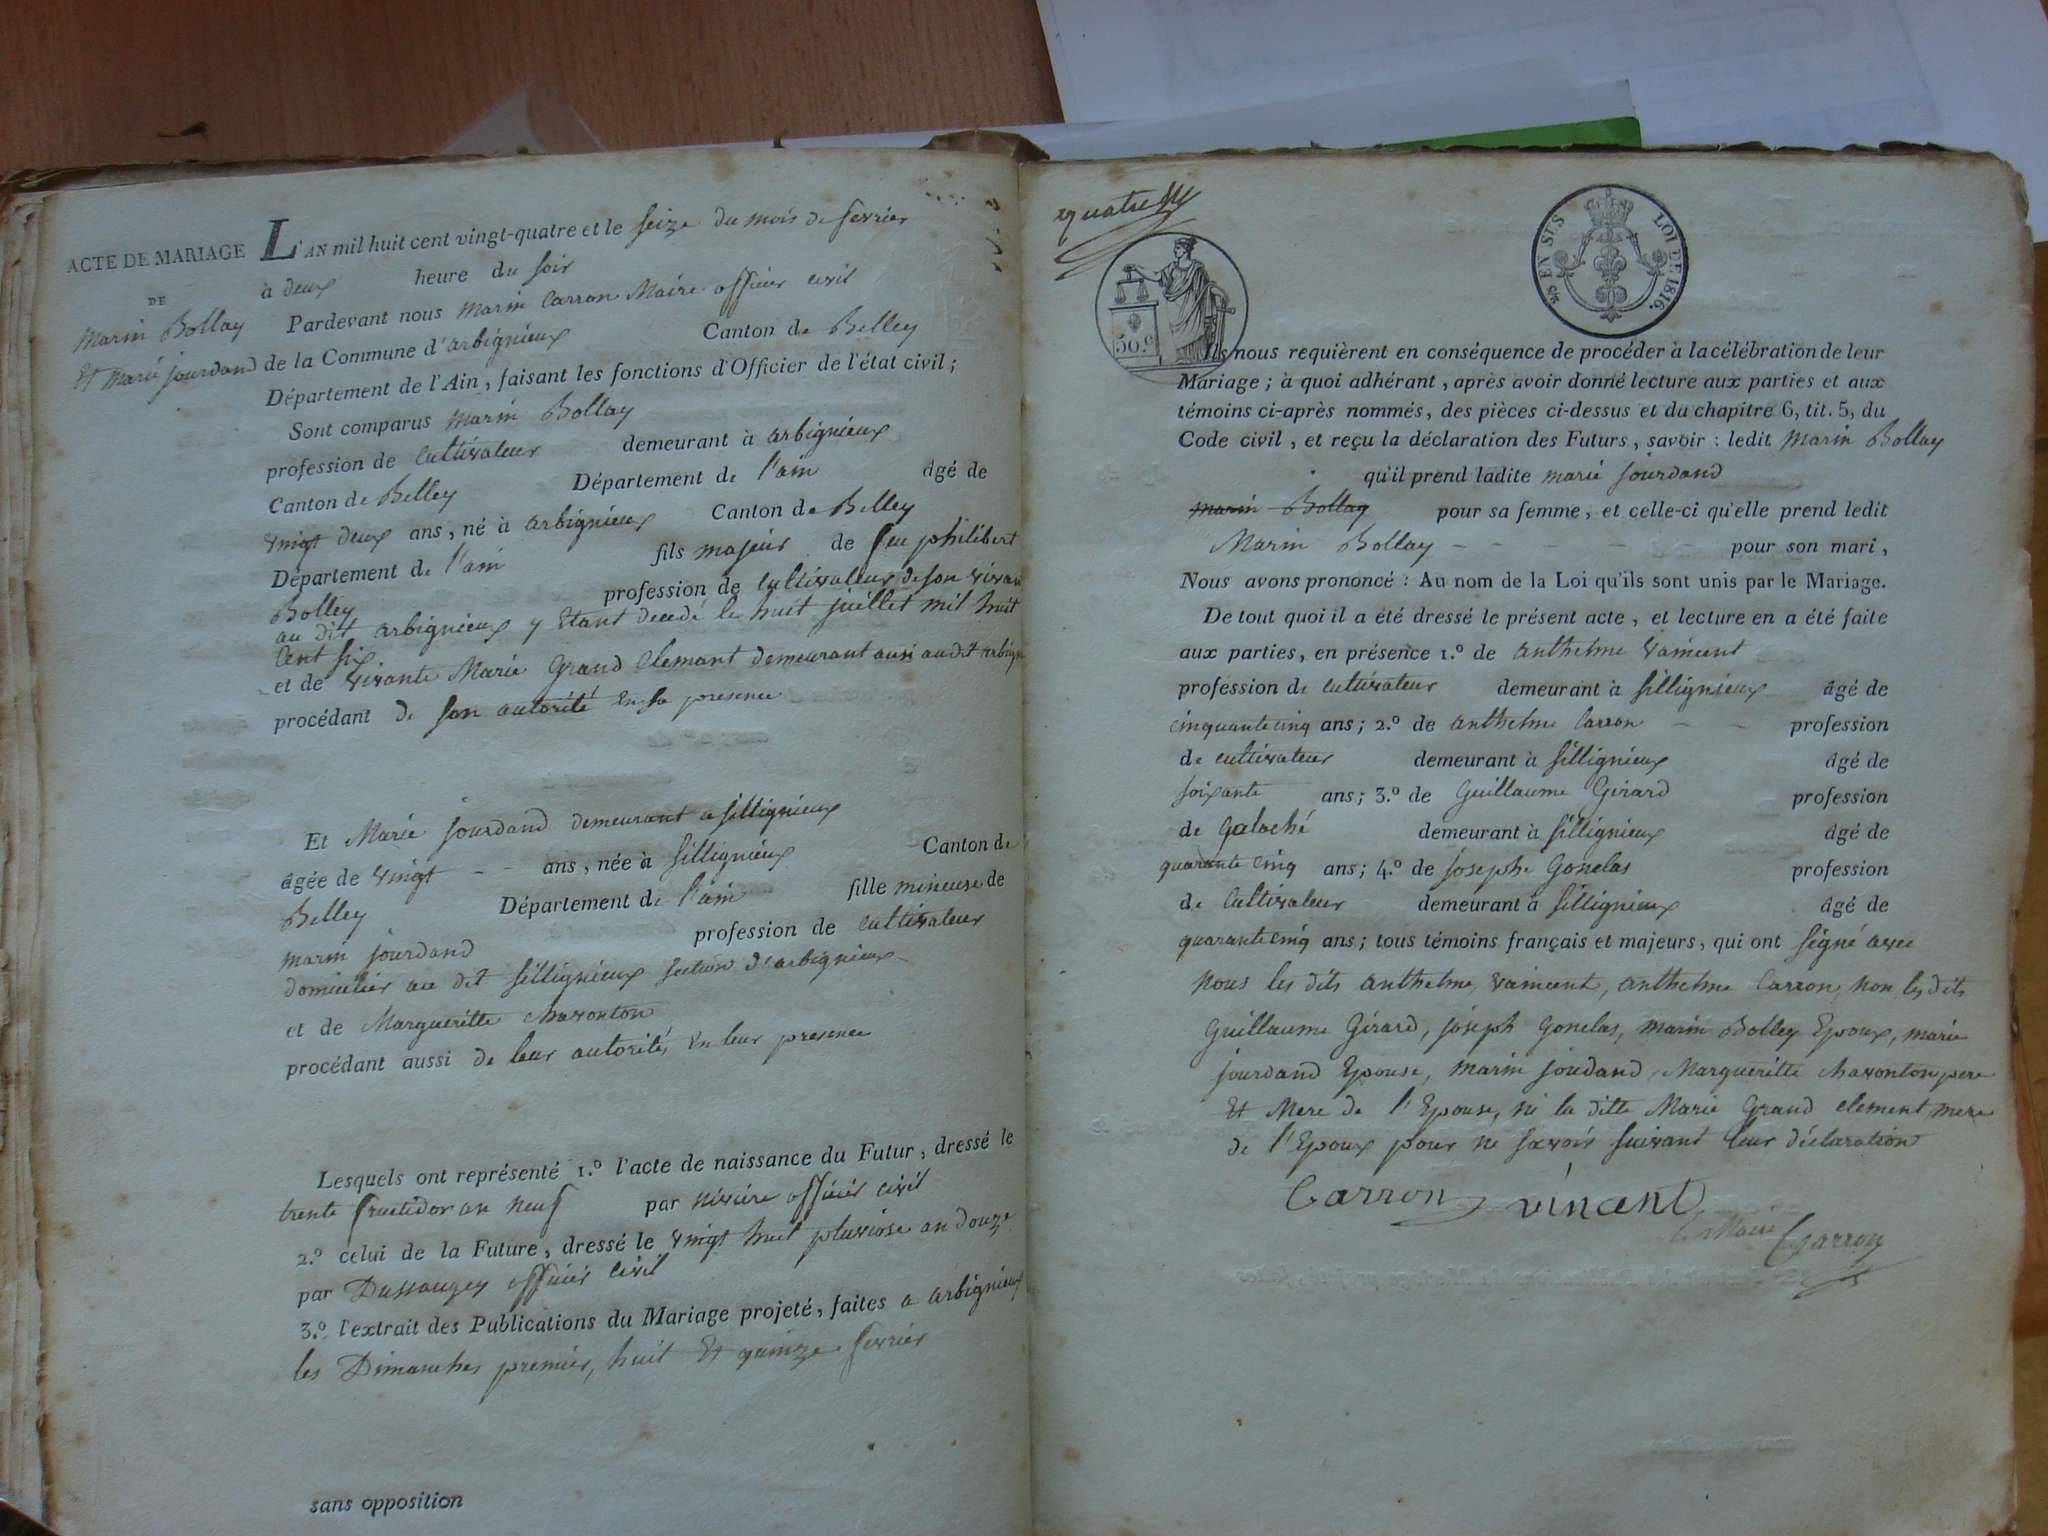 ACTE DE MARIAGE
DE
Marin Bollay
Et marie jourdand
L'AN mil huit cent vingt-quatre et le seize du mois de fevrier
à deux heure du soir
Pardevant nous marin Carron Maire officier civil
de la Commune d'arbignieux Canton de Belley
Département de l'Ain, faisant les fonctions d'Officier de l'état civil;
Sont comparus marin Bollay
profession de cultivateur demeurant à arbignieux
Canton de Belley Département de l'ain âgé de
vingt deux ans, né à arbignieux Canton de Belley
Département de l'ain fils majeur de feu philibert
Bolley profession de cultivateur de son vivant
au dit arbignieux y Etant decedé le huit juillet mil huit
Cent six
et de vivante Marie Grand Clemant demeurant ausi audit arbign
procédant de son autorité En sa presence
Et Marie jourdand demeurant a sillignieux
âgée de vingt - - ans, née à sillignieux Canton de
Belley Département de l'ain fille mineure de
marin jourdand profession de cultivateur
domicilier au dit sillignieux section d'arbignieux
et de Margueritte chavonton
procédant aussi de leur autorités En leur presence
Lesquels ont représenté 1.º l'acte de naissance du Futur, dressé le
trente fructidor an neuf par niviere officier civil
2.º celui de la Future, dressé le vingt huit pluviose an douze
par Dussaugey officier civil
3.º l'extrait des Publications du Mariage projeté, faites a arbignieux
les Dimanches premier, huit Et quinze fevrier
sans opposition
quatre
EN SUS LOI DE 1816.
50.c
Ils nous requièrent en conséquence de procéder à la célébration de leur
Mariage; à quoi adhérant, après avoir donné lecture aux parties et aux
témoins ci-après nommés, des pièces ci-dessus et du chapitre 6, tit. 5, du
Code civil, et reçu la déclaration des Futurs, savoir: ledit Marin Bollay
qu'il prend ladite marie jourdand
marin Bollay pour sa femme, et celle-ci qu'elle prend ledit
Marin Bollay - - - - - pour son mari,
Nous avons prononcé: Au nom de la Loi qu'ils sont unis par le Mariage.
De tout quoi il a été dressé le présent acte, et lecture en a été faite
aux parties, en présence 1.º de anthelme vaincent
profession de cultivateur demeurant à sillignieux âgé de
cinquante cinq ans; 2.º de anthelme Carron - - profession
de cultivateur demeurant à sillignieux âgé de
soixante ans; 3.º de Guillaume Girard profession
de galoché demeurant à sillignieux âgé de
quarante cinq ans; 4.º de josephe Gonelas profession
de Cultivateur demeurant à sillignieux âgé de
quarante cinq ans; tous témoins français et majeurs, qui ont signé avec
nous les dits anthelme vaincent, anthelme Carron, non les dits
Guillaume Girard, joseph Gonelas, marin Bolley Epoux, marie
jourdand Epouse, marin joudand, Margueritte chavonton pere
Et Mere de l'Epouse, ni la ditte Marie Grand clement mere
de l'Epoux pour ne savoir suivant leur déclaration
Carron vincent
Le Maire Carron